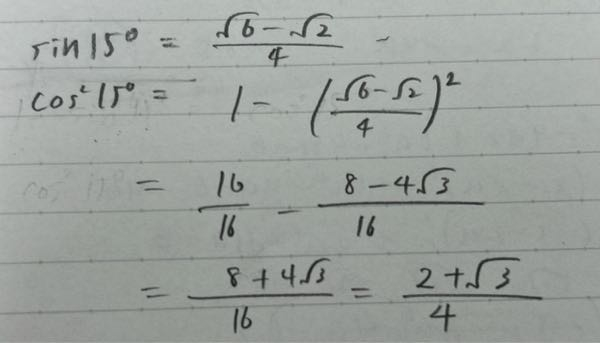 sin 15° = (√6 − √2)/4
cos² 15° = 1 − ((√6 − √2)/4)²
= 16/16 − (8 − 4√3)/16
= (8 + 4√3)/16 = (2 + √3)/4